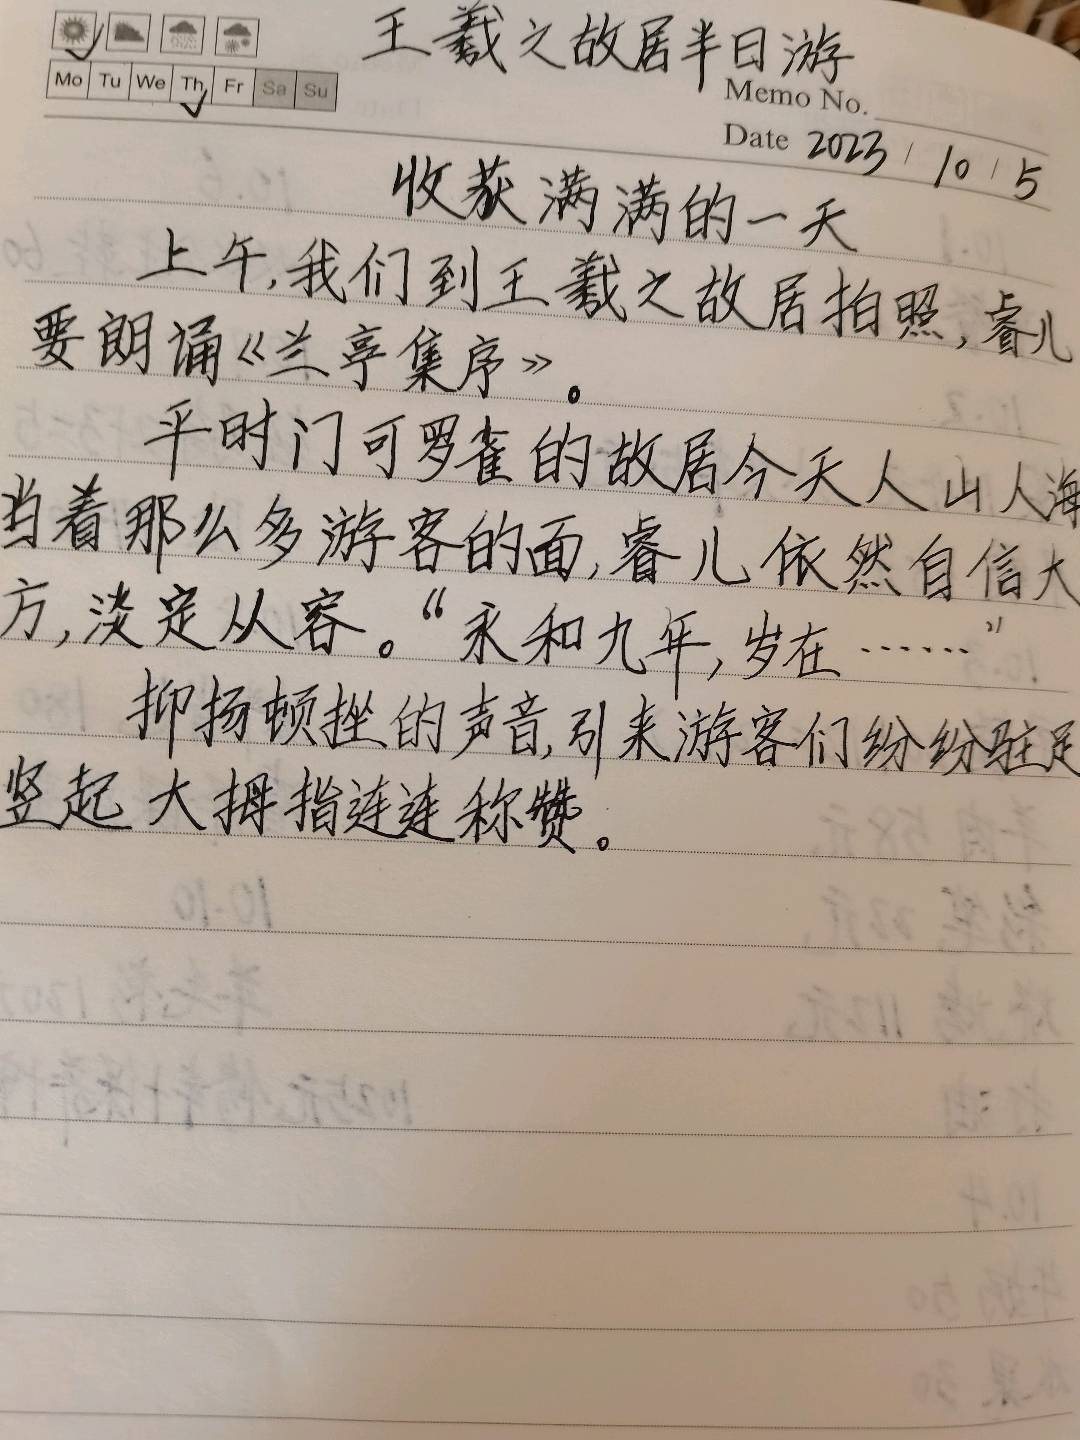 王羲之故居半日游
Mo Tu We Th Fr Sa Su
Memo No.
Date 2023 / 10 / 5
收获满满的一天
上午,我们到王羲之故居拍照,睿儿
要朗诵《兰亭集序》。
平时门可罗雀的故居今天人山人海
当着那么多游客的面,睿儿依然自信大
方,淡定从容。“永和九年,岁在……”
抑扬顿挫的声音,引来游客们纷纷驻足
竖起大拇指连连称赞。
10.10